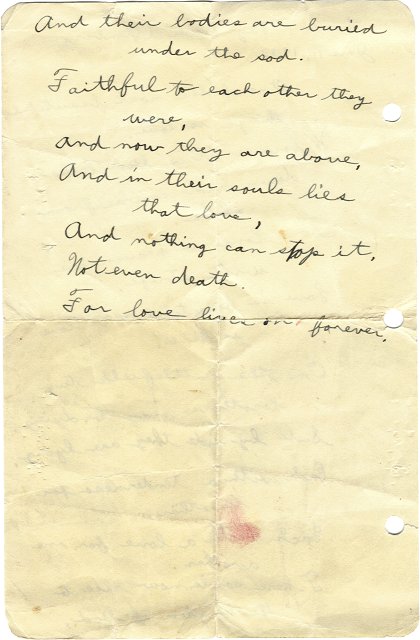 And their bodies are buried
under the sod.
Faithful to each other they
were,
And now they are above,
And in their souls lies
that love,
And nothing can stop it,
Not even death.
For love lives on forever.